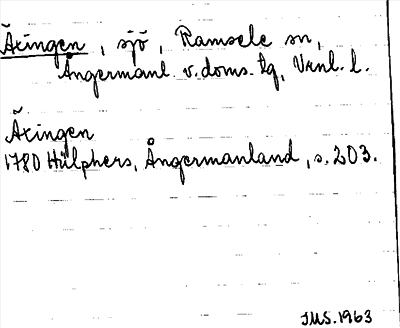 Äxingen, sjö, Ramsele sn,
Ångermanl. v. doms. tg, Vrnl. l.
Äxingen
1780 Hülphers, Ångermanland, s. 203.
JMS. 1963